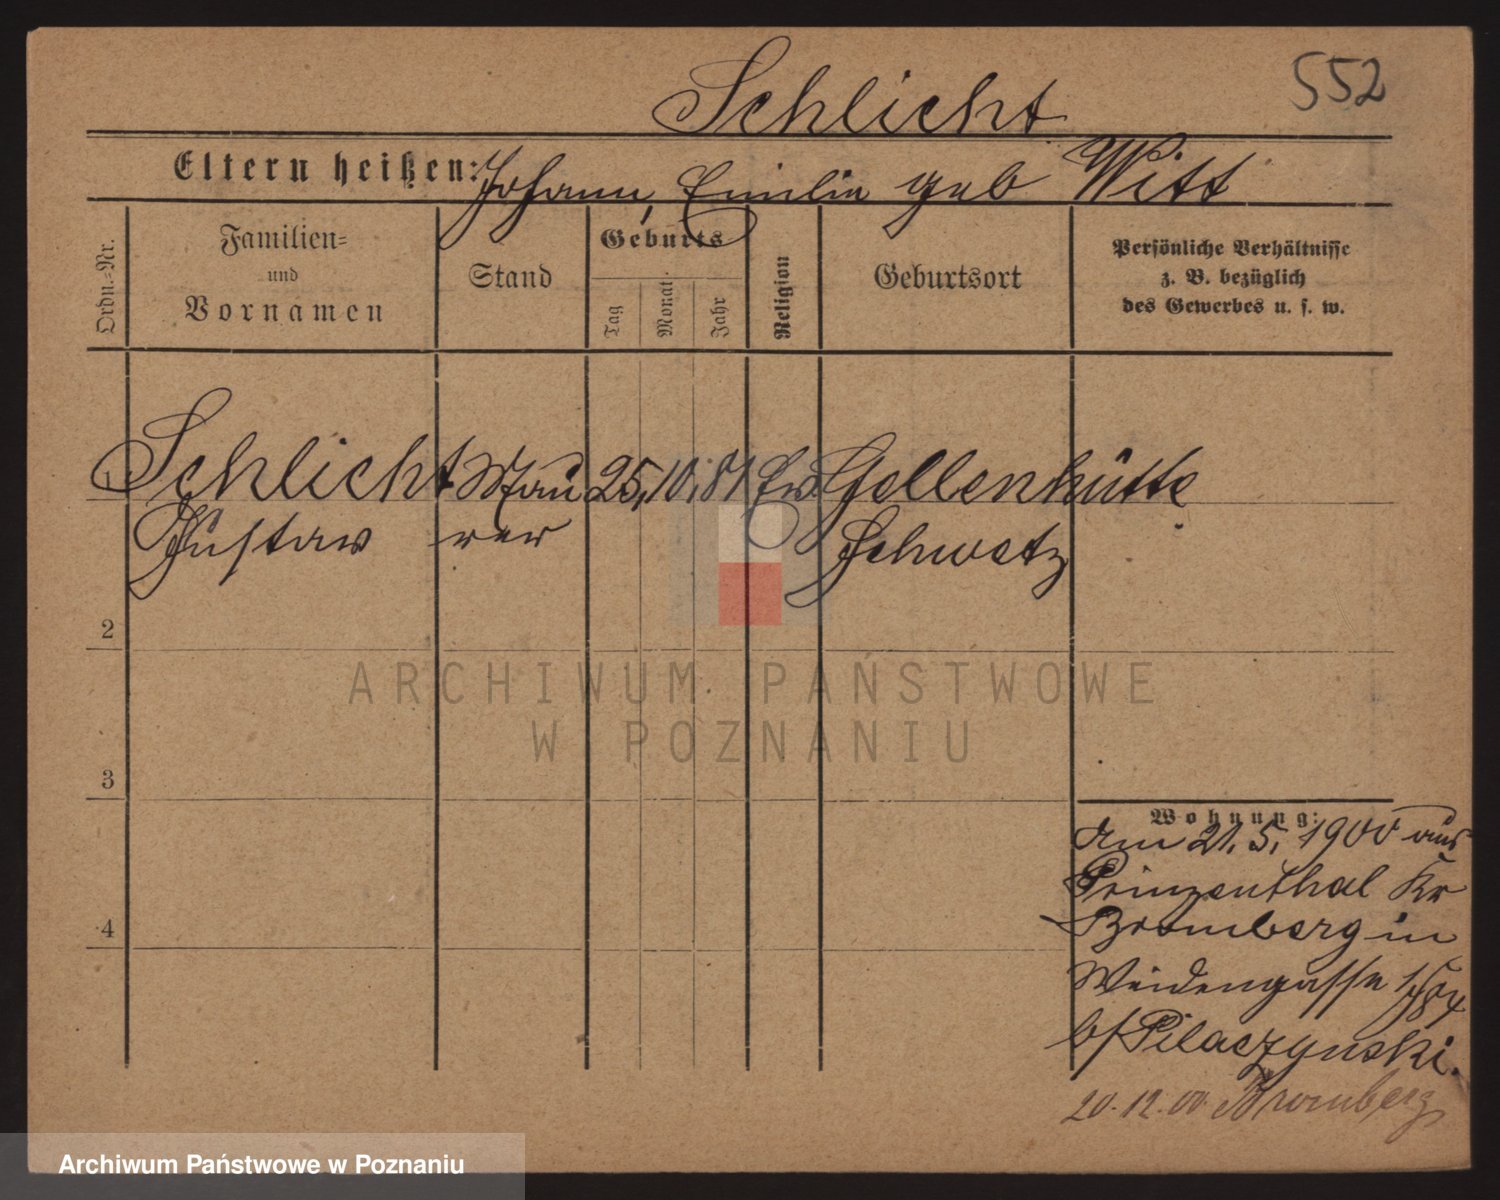 552
Schlicht
Eltern heißen: Johann, Emilie geb Witt
Ordn.-Nr.
Familien- und Vornamen
Stand
Geburts
Tag
Monat
Jahr
Religion
Geburtsort
Persönliche Verhältnisse
z. B. bezüglich
des Gewerbes u. s. w.
1 Schlicht Mau 25. 10. 81 Ev. Gellenhütte
Gustav rer Schwetz
2
3
4
ARCHIWUM PAŃSTWOWE
W POZNANIU
Wohnung:
Am 21. 5. 1900 aus
Prinzenthal Kr
Bromberg in
Weidengasse
b/ Pilaczynski.
20.12.00 Bromberg
Archiwum Państwowe w Poznaniu